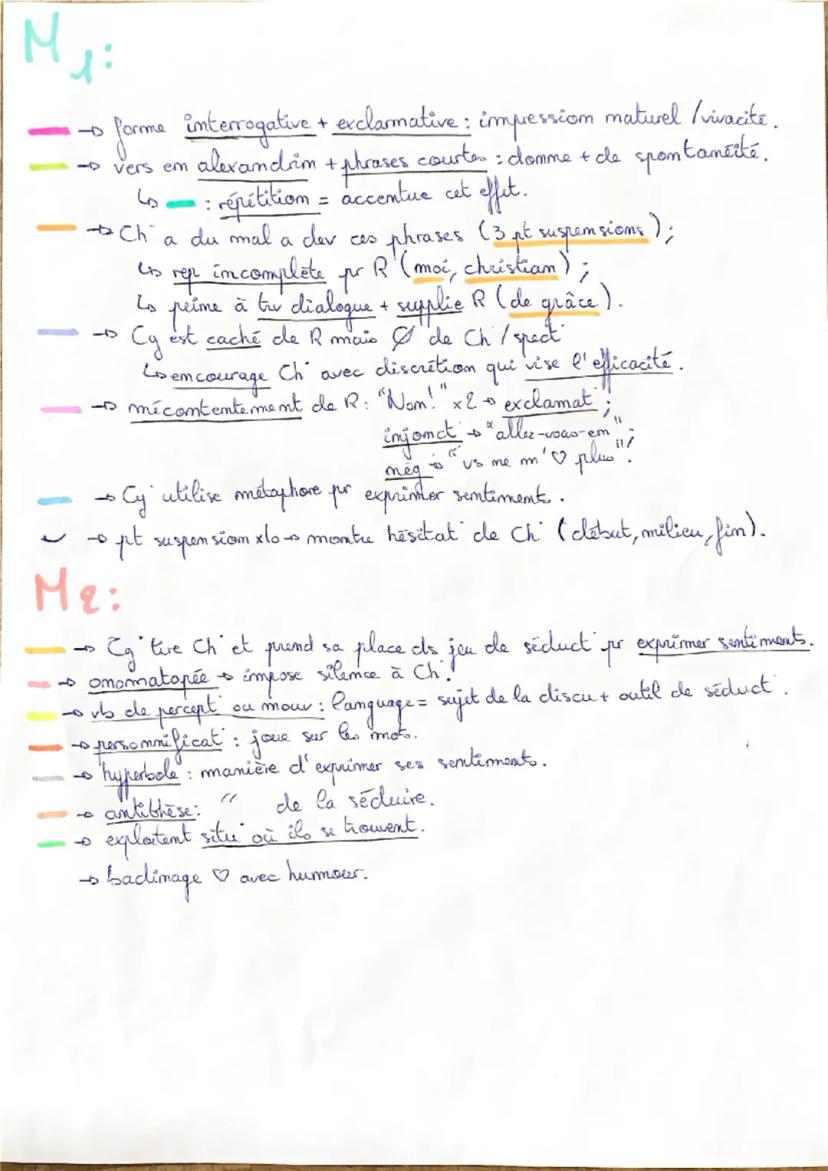 M1:
→ forme interrogative + exclamative : impression naturel / vivacité.
→ vers en alexandrin + phrases courtes : donne + de spontanéité.
↳ : répétition = accentue cet effet.
→ Ch° a du mal a dev ces phrases (3 pt suspensions) ;
↳ rep incomplète pr R° (moi, christian) ;
↳ peine à tuv dialogue + supplie R (de grâce).
→ Cy est caché de R mais Ø de Ch / spect°
↳ encourage Ch° avec discrétion qui vise l'efficacité.
→ mécontentement de R : "Non!" x2 → exclamat° ;
injonct° → "allez-vous-en" ;
nég → "vs ne m'♡ plus".
→ Cy° utilise métaphore pr exprimer sentiment.
→ pt suspension x10 → montre hésitat° de Ch° (début, milieu, fin).
M2:
→ Cy° tire Ch° et prend sa place ds jeu de séduct° pr exprimer sentiments.
→ onomatopée → impose silence à Ch°.
→ vb de percept° ou mouv : language = sujet de la discu + outil de séduct°.
→ personnificat° : joue sur les mots.
→ hyperbole : manière d'exprimer ses sentiments.
→ antithèse : " de la séduire.
→ exploitent situ° où ils se trouvent.
→ badinage ♡ avec humour.